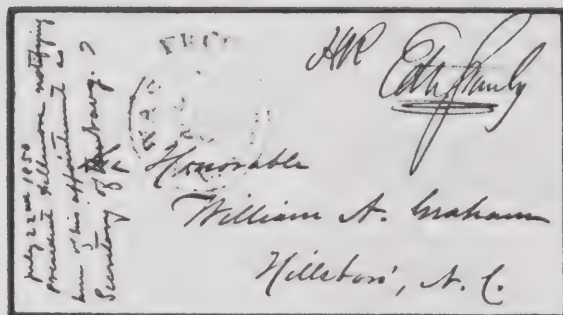 July 22nd 1850
President Fillmore notifying
him of his appointment as
Secretary of the Navy.
Honorable
William A. Graham
Hillsboro', N. C.